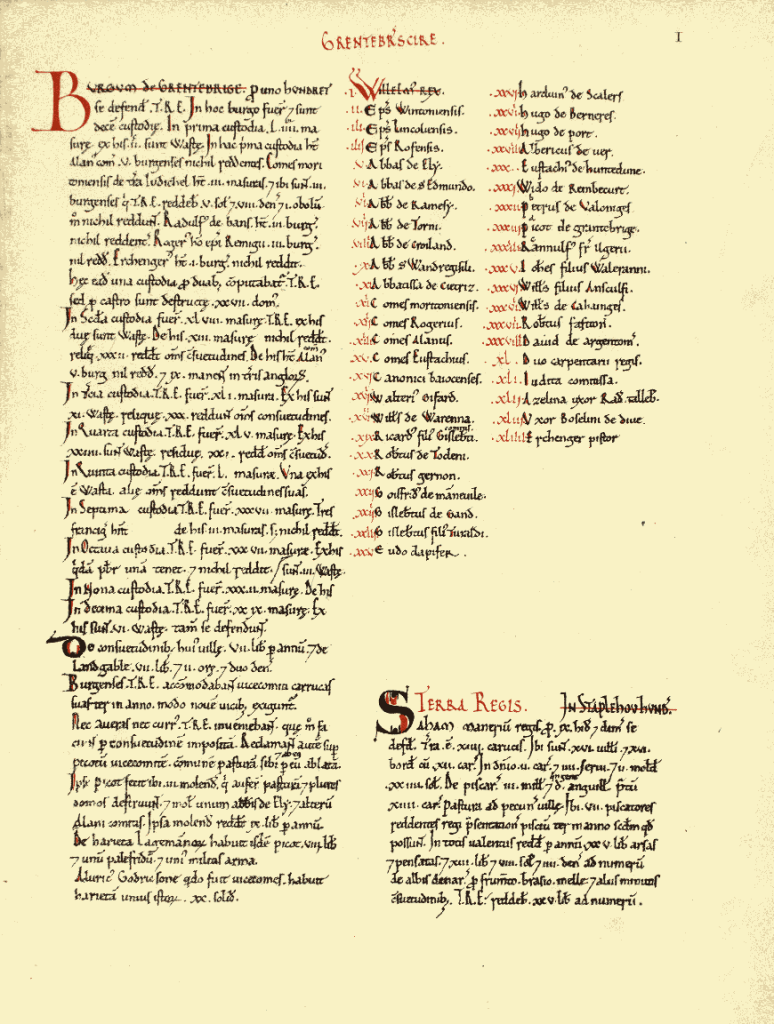 GRENTEBR'SCIRE.
I
BURGUM de GRENTEBRIGE. p uno HUNDRET
se defend' .T.R.E. In hoc burgo fuer' 7 sunt
decē custodię. In prima custodia. L. IIII. ma
surę. ex his. II. sunt Wastę. In hac p'ma custodia ht'
Alan' com'. V. burgenses nichil reddentes. Comes mori
toniensis de tra Judichel ht'. III. masuras. 7 ibi sunt. III.
burgenses q' T.R.E. reddeb'. V. sol' 7 VIII. den' 7 I. obolū
m' nichil reddun't. Radulf' de bans. ht'. III. burg'.
nichil reddent'. Roger' ho epi Remigii. III. burg'.
nil redd'. Erchenger' ht' I. burg'. nichil reddit.
hęc ead' una custodia p duab; cōputabat' T.R.E.
sed p castro sunt destructę. XXVII. dom'.
In Scda custodia fuer'. XL VIII. masurę. T.R.E. ex his
duę sunt Wastę. De his. XIII. masurę nichil reddt'.
reliq'. XXXII. reddt' om's c'suetudines. De his ht' Alan'
V. burg'. nil redd'. 7 IX. manen't in tris anglor'.
In Tcia custodia. T.R.E. fuer'. XL I. masura. Ex his sun't
XI. Wastę. reliquę. XXX. reddunt om's consuetudines.
In Quarta custodia. T.R.E. fuer'. XL V. masurę. Ex his
XXIIII. sun't Wastę. residuę. XXI. reddt' om's c'suetud'.
In Quinta custodia T.R.E. fuer'. L. masurę. Una ex his
ē Wasta. alię om's reddunt c'suetudines suas.
In Septima custodia. T.R.E. fuer'. XXXVII. masurę. Tres
francig' hn't de his. III. masuras. s; nichil reddt'.
In Octava custodia. T.R.E. fuer'. XXX VII. masurę. Ex his
q'dā pbr' unā tenet. 7 nichil reddit. sun't. III. Wastę.
In Nona custodia. T.R.E. fuer'. XXX.II. masurę. De his
In decima custodia. T.R.E. fuer'. XX IX. masurę. Ex
his sun't. VI. Wastę. tam' se defendun't.
De consuetudinib; hui' villę. VII. lib' p annū. 7 de
Landgable. VII. lib'. 7 II. orę. 7 duo den'.
Burgenses. T.R.E. accōmodaban't vicecomiti carrucas
suas ter in anno. modo novē vicib; exigunt'.
Nec averas nec curr'. T.R.E. inveniebant'. quę m' fa
ciun't p consuetudinē impositā. Reclaman't autē sup
pecotū vicecomitē. comunē pasturā. sibi p eū ablatā.
Ipse Picot fecit ibi. III. molend'. q' aufer' pasturā 7 plures
domos destruun't. 7 mol' unum abb'is de Ely. 7 alterū
Alani comitis. Ipsa molend' reddt' IX. lib' p annū.
De harieta Lagemannor' habuit isde Picot. VIII. lib'
7 unū palefridū. 7 uni' militis arma.
Aluric' Godricsone q'do fuit vicecomes. habuit
harietā unius istor'. XX. solid'.
.I. Willelm' REX.
.II. Ep's Wintoniensis.
.III. Ep's Lincoliensis.
.IIII. Ep's Rofensis.
V. Abbas de Ely.
VI. Abbas de S Edmundo.
VII. Abb' de Ramesy.
VIII. Abb' de Torni.
IX. Abb' de Croiland.
X. Abb' S Wandregisili.
XI. Abbatissa de Cietriz.
XII. Comes moritoniensis.
XIII. Comes Rogerius.
XIIII. Comes Alanus.
XV. Comes Eustachius.
XVI. Canonici baiocenses.
XVII. Walteri' Gifard.
XVIII. Will's de Warenna.
XIX. Ricard' fili' Gisleb'ti. comitis
XX. Rob'tus de Todeni.
XXI. Rob'tus gernon.
XXII. Goisfrid' de maneuile.
XXIII. Gisleb'tus de Gand.
XXIIII. Gisleb'tus fili' Turaldi.
XXV. Eudo dapifer.
XXVI. harduin' de Scalers
XXVII. hugo de Berneres.
XXVIII. hugo de port.
XXIX. Albericus de ver.
XXX. Eustachi' de huntedune.
XXXI. Wido de Rembecurt.
XXXII. Petrus de Valonges.
XXXIII. Picot de grentebrige.
XXXIIII. Rannulf' fr' ilgerii.
XXXV. Iohes filius Waleranni.
XXXVI. Will's filius Ansculfi.
XXXVII. Will's de Cahainges.
XXXVIII. Rob'tus fafiton.
XXXVIIII. Dauid de argentom'.
XL. Duo carpentarii regis.
XLI. Iudita comitissa.
XLII. Azelina uxor Rad' talleb'.
XLIII. Uxor Boselini de dive.
XLIIII. Erchenger pistor
TERRA REGIS. IN STAPLEHOU HUND'.
SAHAM maneriū regis. p. IX. hid' 7 dim' se
defd'. Tra. ē. XIIII. carucis. Ibi sun't. XVI. villi. 7 XVI.
bord' cū XII. car'. In dn'io. II. car'. 7 IIII. servi. 7 II. mold'
XXIIII. sol'. De piscar'. III. mill' 7 d'. anguill'. p'tū
XIIII. car'. Pastura ad pecun' villę. Ibi. VII. piscatores
reddentes regi p'sentation' pisciū ter in anno scdm qd
possun't. In totis valentiis reddt' p annū. XX V. lib' arsas
7 pensatas. 7 XIII. lib' 7 VIII. sol' 7 IIII. den' ad numerū
de albis denar' p frum'to. brasio. melle. 7 aliis minutis
c'suetudinib;. T.R.E. reddeb'. XX V. lib' ad numerū.